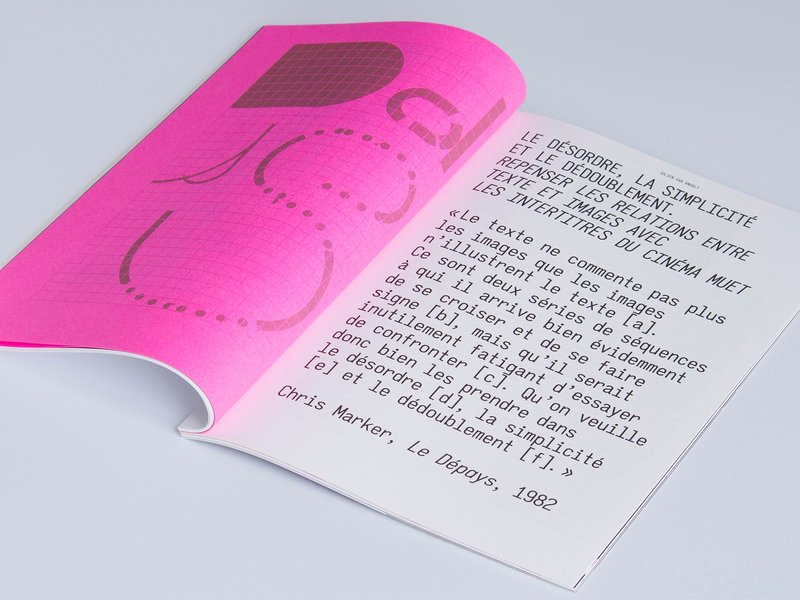 JULIEN VAN ANHOLT
LE DÉSORDRE, LA SIMPLICITÉ
ET LE DÉDOUBLEMENT.
REPENSER LES RELATIONS ENTRE
TEXTE ET IMAGES AVEC
LES INTERTITRES DU CINÉMA MUET
«Le texte ne commente pas plus
les images que les images
n’illustrent le texte [a].
Ce sont deux séries de séquences
à qui il arrive bien évidemment
de se croiser et de se faire
signe [b], mais qu’il serait
inutilement fatigant d’essayer
de confronter [c]. Qu’on veuille
donc bien les prendre dans
le désordre [d], la simplicité
[e] et le dédoublement [f].»
Chris Marker, Le Dépays, 1982